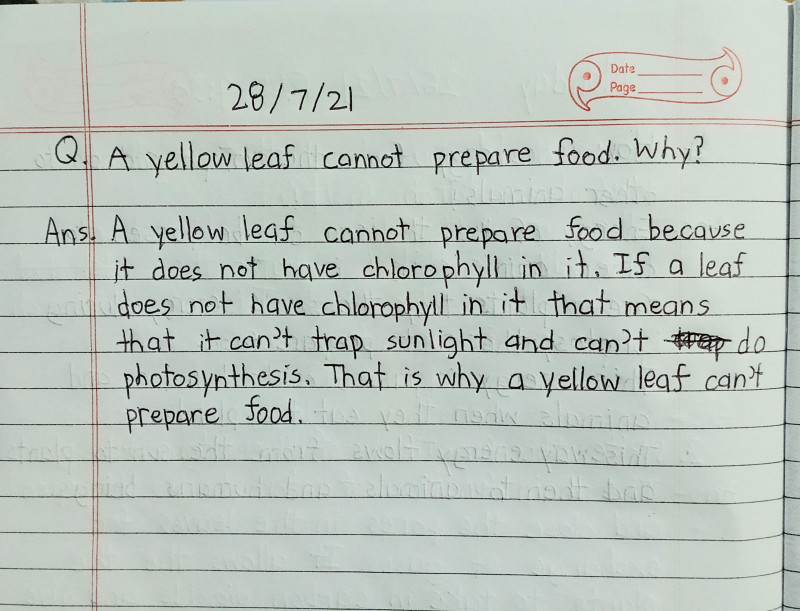 Date
Page
28/7/21
Q. A yellow leaf cannot prepare food. Why?
Ans. A yellow leaf cannot prepare food because
it does not have chlorophyll in it. If a leaf
does not have chlorophyll in it that means
that it can't trap sunlight and can't do
photosynthesis. That is why a yellow leaf can't
prepare food.